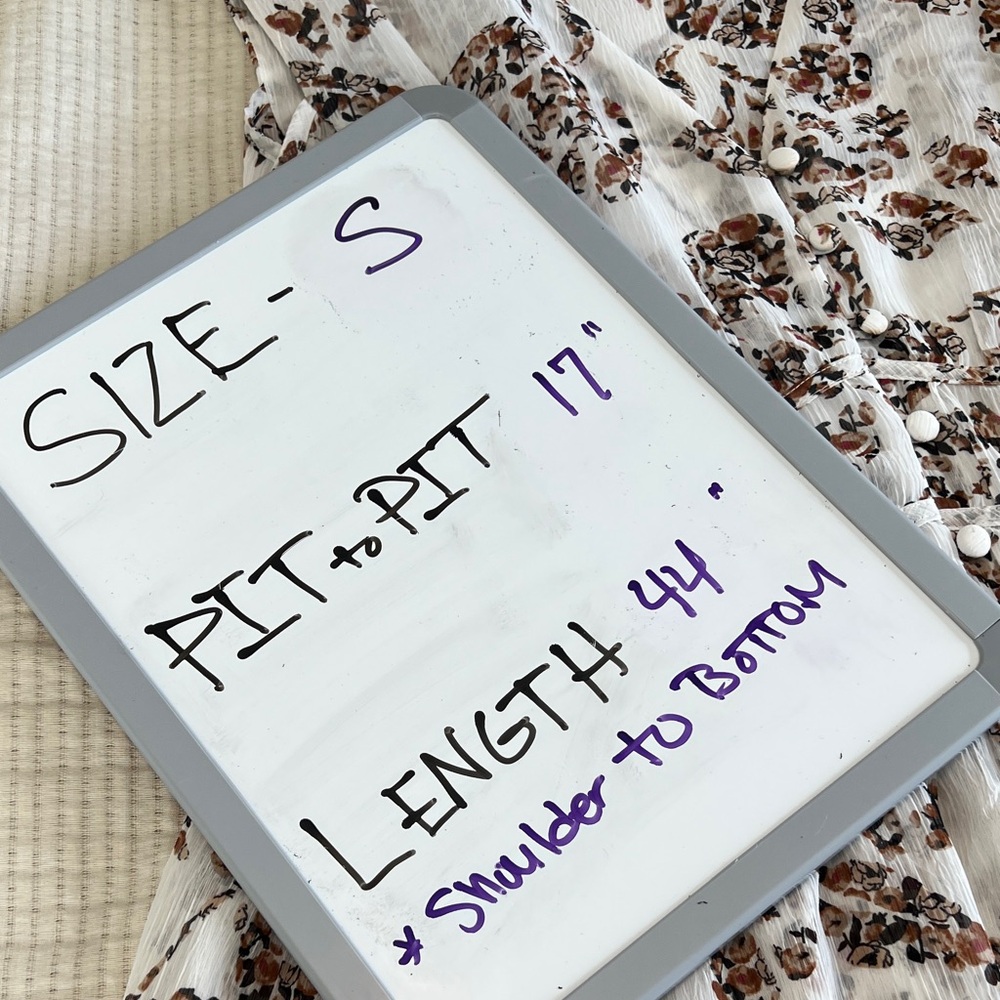 SIZE - S
PIT to PIT 17"
LENGTH 44"
* Shoulder to BOTTOM